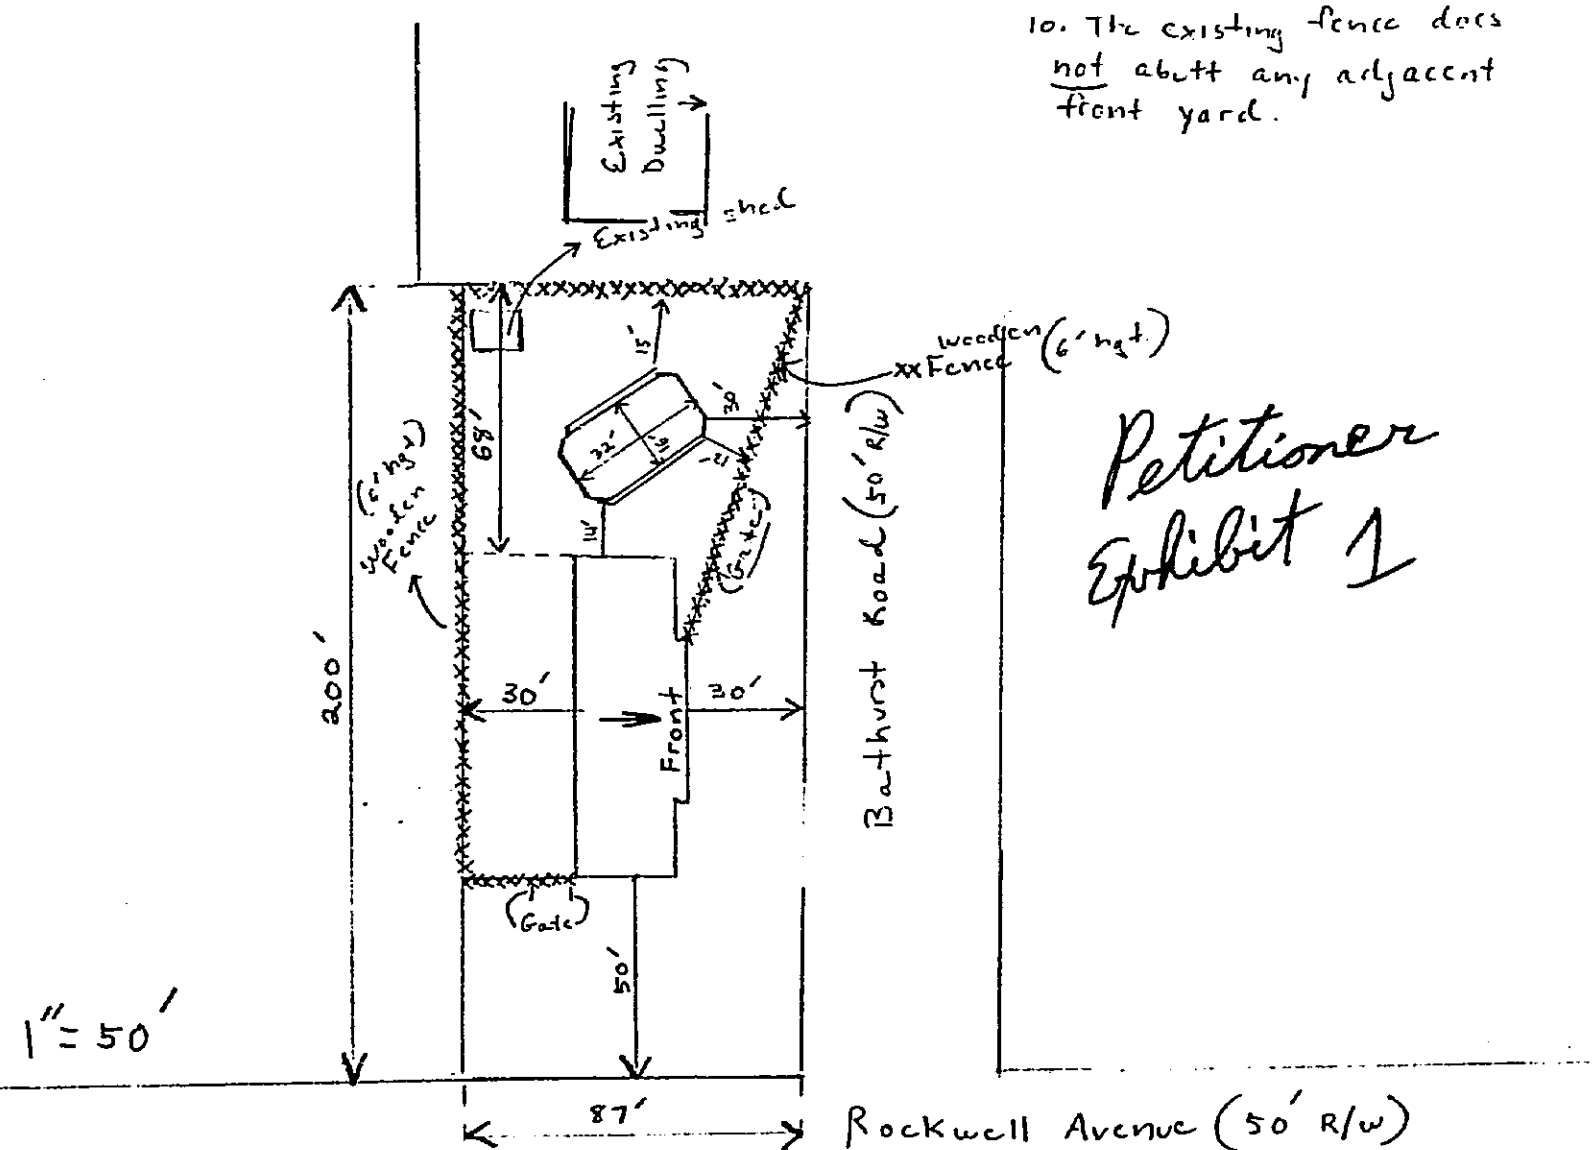 10. The existing fence does
not abutt any adjacent
front yard.
Existing
Dwelling
Existing shed
15'
wooden (6' hgt.)
xx Fence
30'
68'
32'
16'
12'
14'
(Gate)
(6' hgt)
Wooden
Fence
200'
30'
Front
30'
Bathurst Road (50' R/W)
Petitioner
Exhibit 1
(Gate)
50'
1" = 50'
87'
Rockwell Avenue (50' R/W)